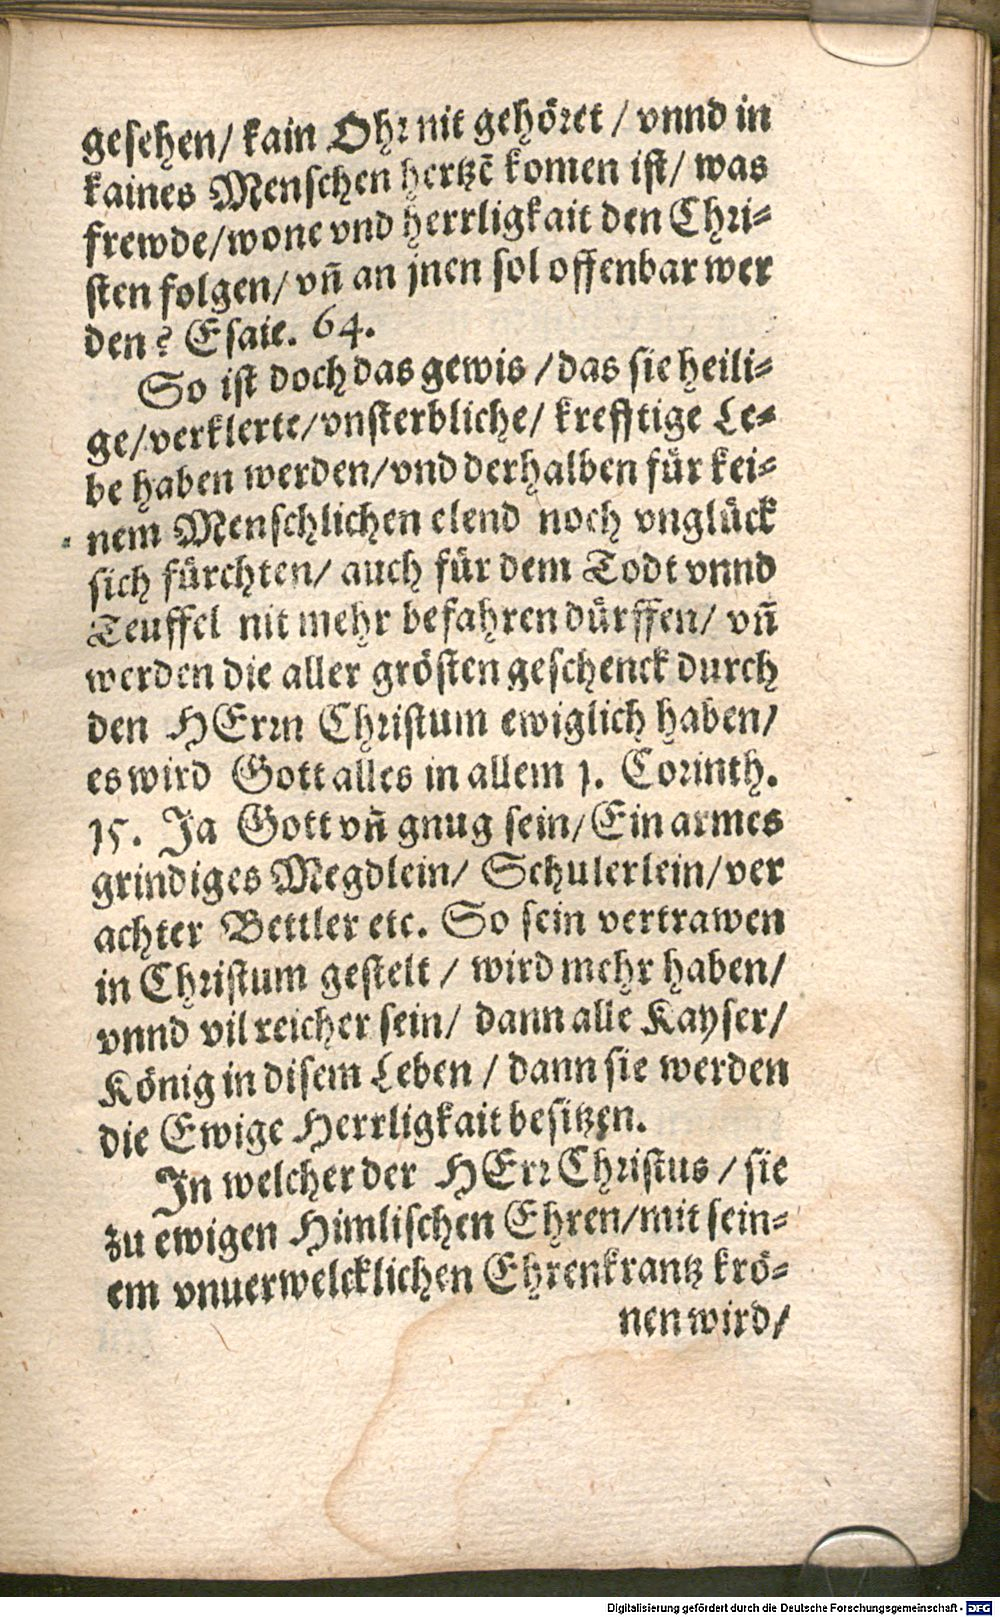 gesehen/ kain Ohr nit gehöret / vnnd in
kaines Menschen hertzē komen ist/ was
frewde/wone vnd herrligkait den Chri⸗
sten folgen/ vn̄ an jnen sol offenbar wer
den? Esaie. 64.
So ist doch das gewis /das sie heili⸗
ge/verklerte/vnsterbliche/ krefftige Le⸗
be haben werden/vnd derhalben für kei⸗
nem Menschlichen elend noch vnglück
sich fürchten/ auch für dem Todt vnnd
Teuffel nit mehr befahren dürffen/ vn̄
werden die aller grösten geschenck durch
den HErrn Christum ewiglich haben/
es wird Gott alles in allem 1. Corinth.
15. Ja Gott vn̄ gnug sein/Ein armes
grindiges Megdlein/ Schulerlein/ver
achter Bettler etc. So sein vertrawen
in Christum gestelt / wird mehr haben/
vnnd vil reicher sein/ dann alle Kayser/
König in disem Leben / dann sie werden
die Ewige Herrligkait besitzen.
In welcher der HErr Christus / sie
zu ewigen Himlischen Ehren/mit sein⸗
em vnuerwelcklichen Ehrenkrantz krö⸗
nen wird/
Digitalisierung gefördert durch die Deutsche Forschungsgemeinschaft - DFG